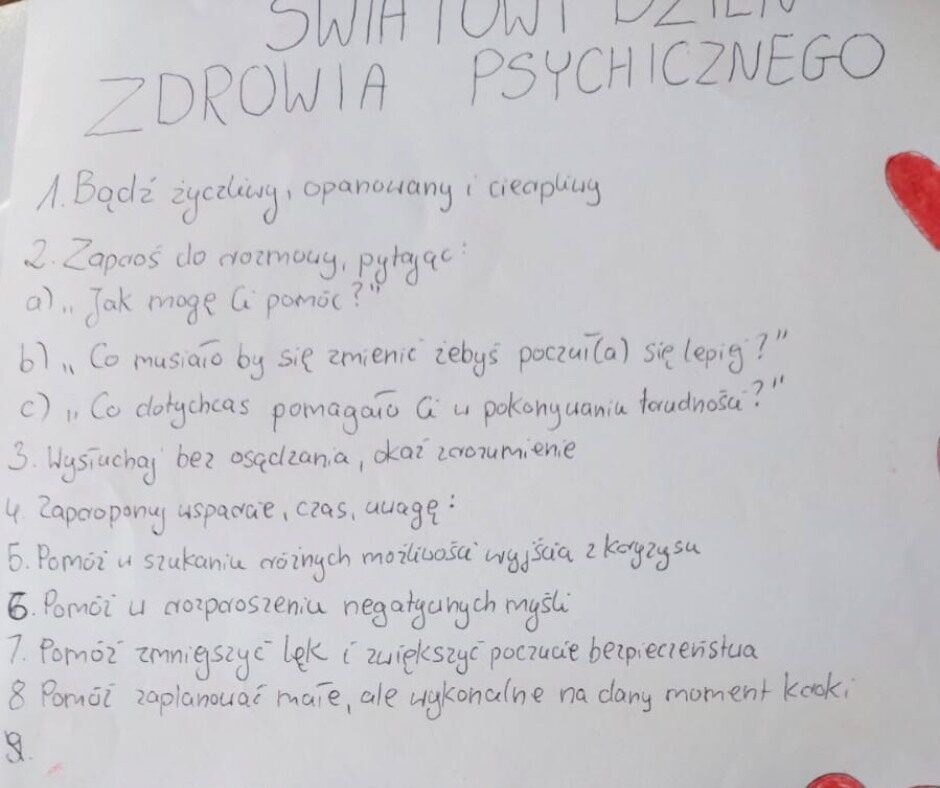 ŚWIATOWY DZIEŃ
ZDROWIA PSYCHICZNEGO
1. Bądź życzliwy, opanowany i cierpliwy
2. Zaproś do rozmowy, pytając:
a) „Jak mogę Ci pomóc?"
b) „Co musiało by się zmienić żebyś poczuł(a) się lepiej?"
c) „Co dotychcas pomagało Ci w pokonywaniu trudności?"
3. Wysłuchaj bez osądzania, okaż zrozumienie
4. Zaproponuj wsparcie, czas, uwagę:
5. Pomóż w szukaniu różnych możliwości wyjścia z kryzysu
6. Pomóż w rozproszeniu negatywnych myśli
7. Pomóż zmniejszyć lęk i zwiększyć poczucie bezpieczeństwa
8 Pomóż zaplanować małe, ale wykonalne na dany moment kroki
9.